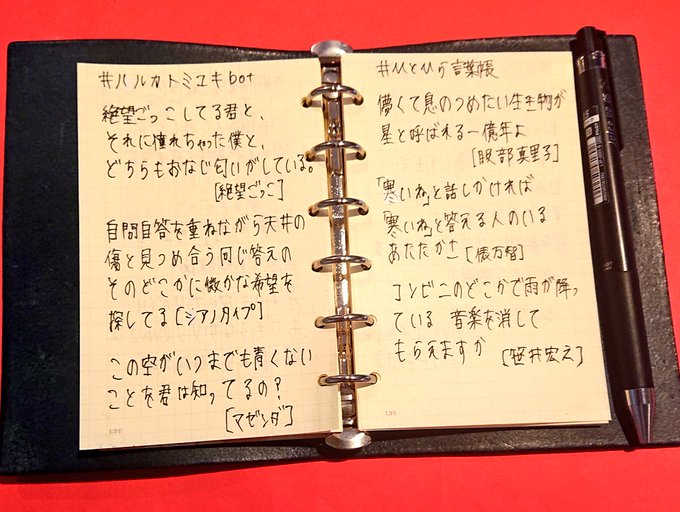 #ハルカトミユキbot
絶望ごっこしてる君と、
それに憧れちゃった僕と、
どちらもおなじ匂いがしている。
[絶望ごっこ]
自問自答を重ねながら天井の
傷と見つめ合う同じ答えの
そのどこかに微かな希望を
探してる[シアノタイプ]
この空がいつまでも青くない
ことを君は知ってるの?
[マゼンダ]
LIFE
#ひとひら言葉帳
儚くて息のつめたい生き物が
星と呼ばれる一億年よ
[服部真里子]
「寒いね」と話しかければ
「寒いね」と答える人のいる
あたたかさ[俵万智]
コンビニのどこかで雨が降っ
ている 音楽を消して
もらえますか [笹井宏之]
LIFE